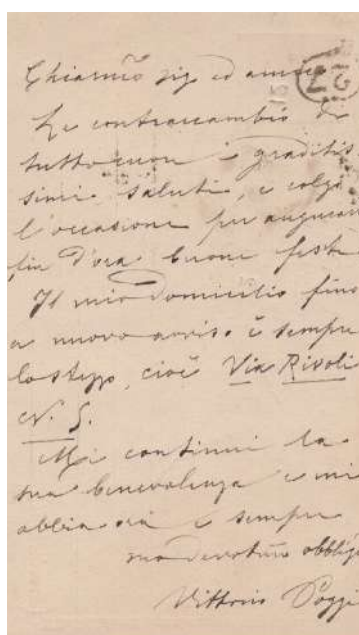 Chiarmo sig. ed amico
Le contraccambio di
tutto cuore i graditis
simi saluti, e colgo
l'occasione per augurar
fin d'ora buone feste
Il mio domicilio fino
a nuovo avviso è sempre
lo stesso, cioè Via Rivoli
N. 5.
Mi continui la
sua benevolenza e mi
abbia ora e sempre
suo devotmo obbligo
Vittorio Poggi